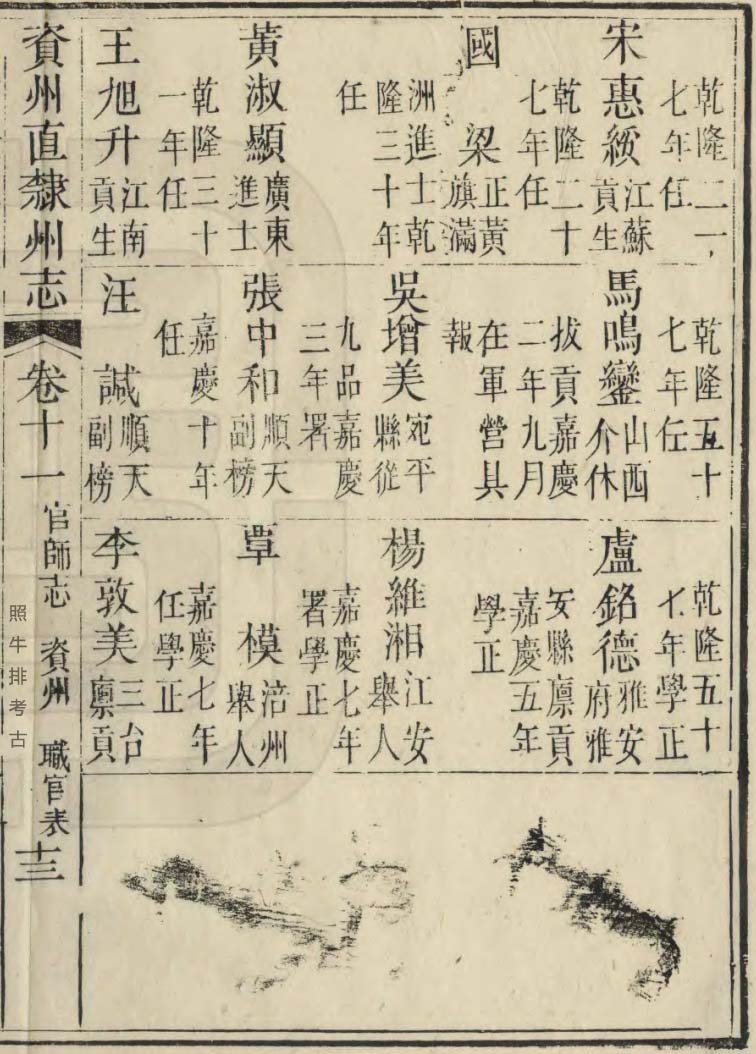 乾隆二十
七年任
宋惠綏
江蘇
貢生
乾隆二十
七年任
國梁
正黃
旗滿
洲進士乾
隆三十年
任
黃淑顯
廣東
進士
乾隆三十
一年任
王旭升
江南
貢生
乾隆五十
七年任
馬鳴鑾
山西
介休
拔貢嘉慶
二年九月
在軍營具
報
吳增美
宛平
縣從
九品嘉慶
三年署
張中和
順天
副榜
嘉慶十年
任
汪諴
順天
副榜
乾隆五十
七年學正
盧銘德
雅安
府雅
安縣廩貢
嘉慶五年
學正
楊維湘
江安
舉人
嘉慶七年
署學正
覃模
涪州
舉人
嘉慶七年
任學正
李敦美
三台
廩貢
資州直隸州志 卷十一 官師志 資州 職官表 十三
照牛排考古